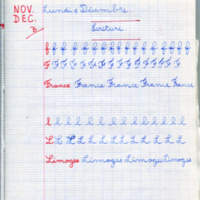 NOV. Lundi 6 Décembre
DEC.
B Écriture
f f f f f f f f f f f f f f
F F F F F F F F F F F F F F
France France France France France
l l l l l l l l l l l l
L L L L L L L L L L L L
Limoges Limoges Limoges Limoges